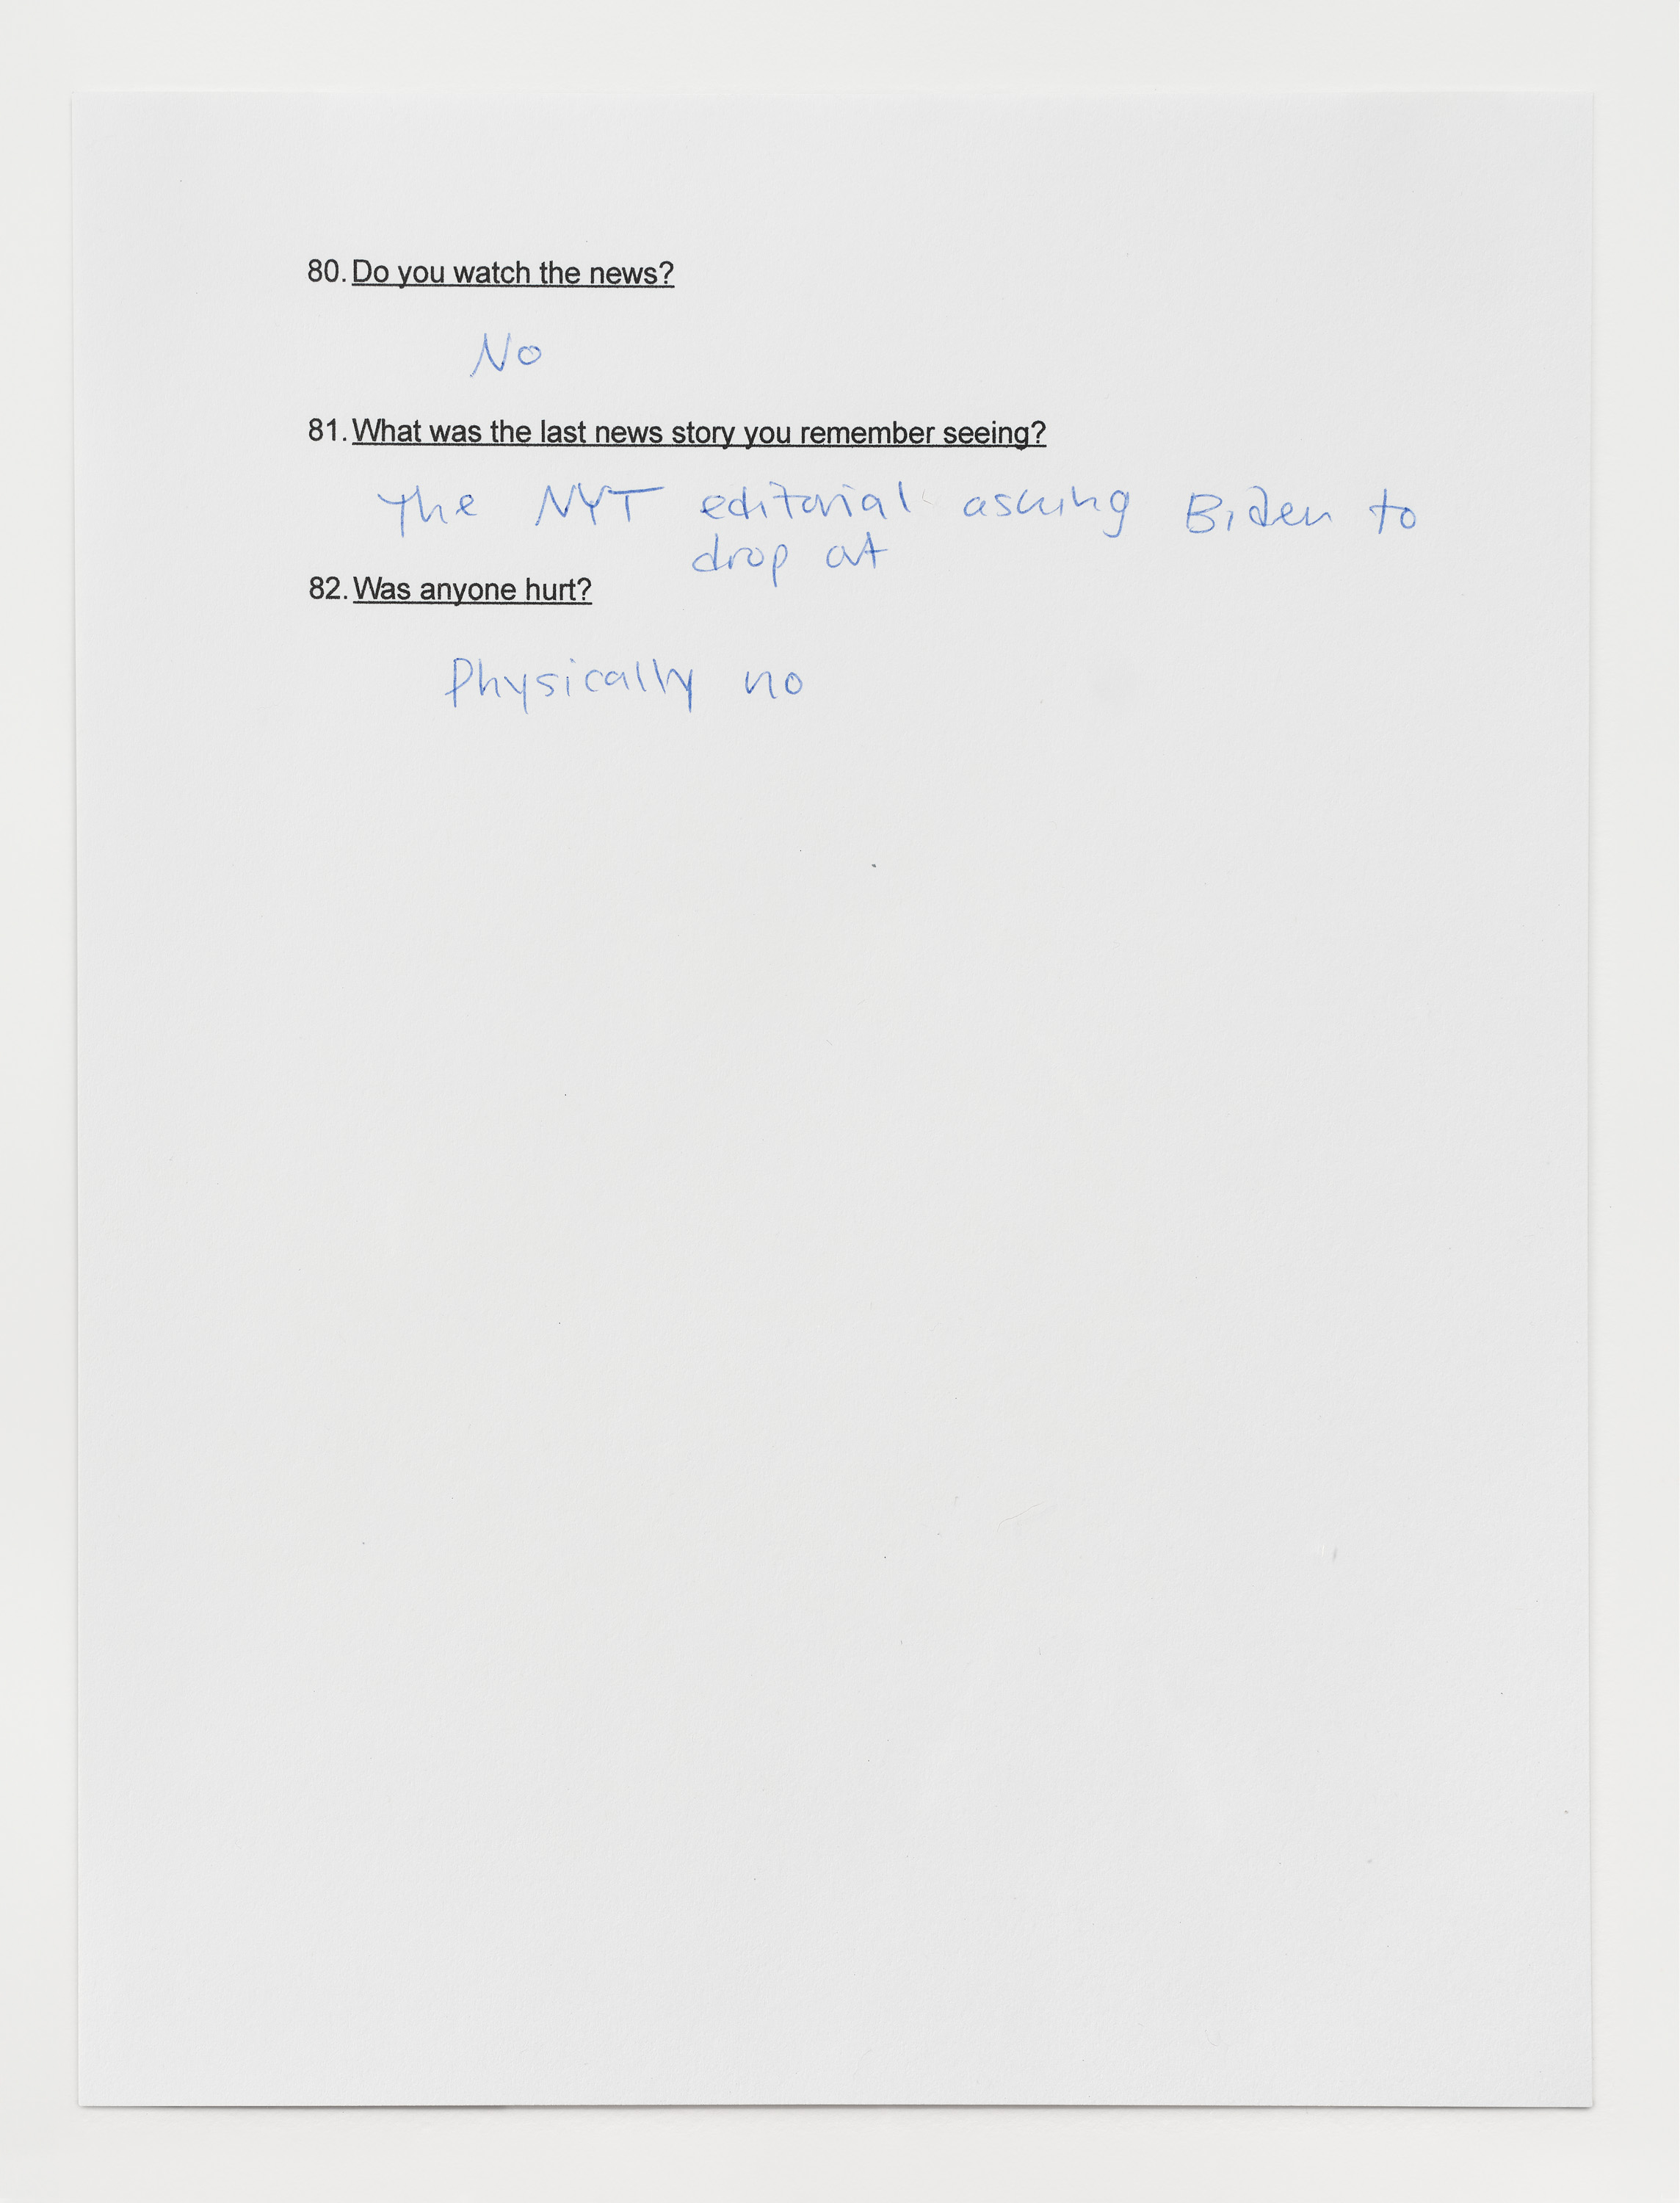 80. Do you watch the news?
No
81. What was the last news story you remember seeing?
The NYT editorial asking Biden to
drop out
82. Was anyone hurt?
Physically no